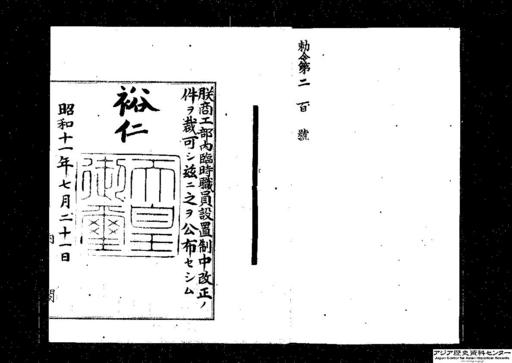 勅令第二百號
朕商工部内臨時職員設置制中改正ノ
件ヲ裁可シ玆ニ之ヲ公布セシム
裕仁
天皇御璽
昭和十一年七月二十一日
内閣
アジア歴史資料センター
Japan Center for Asian Historical Records